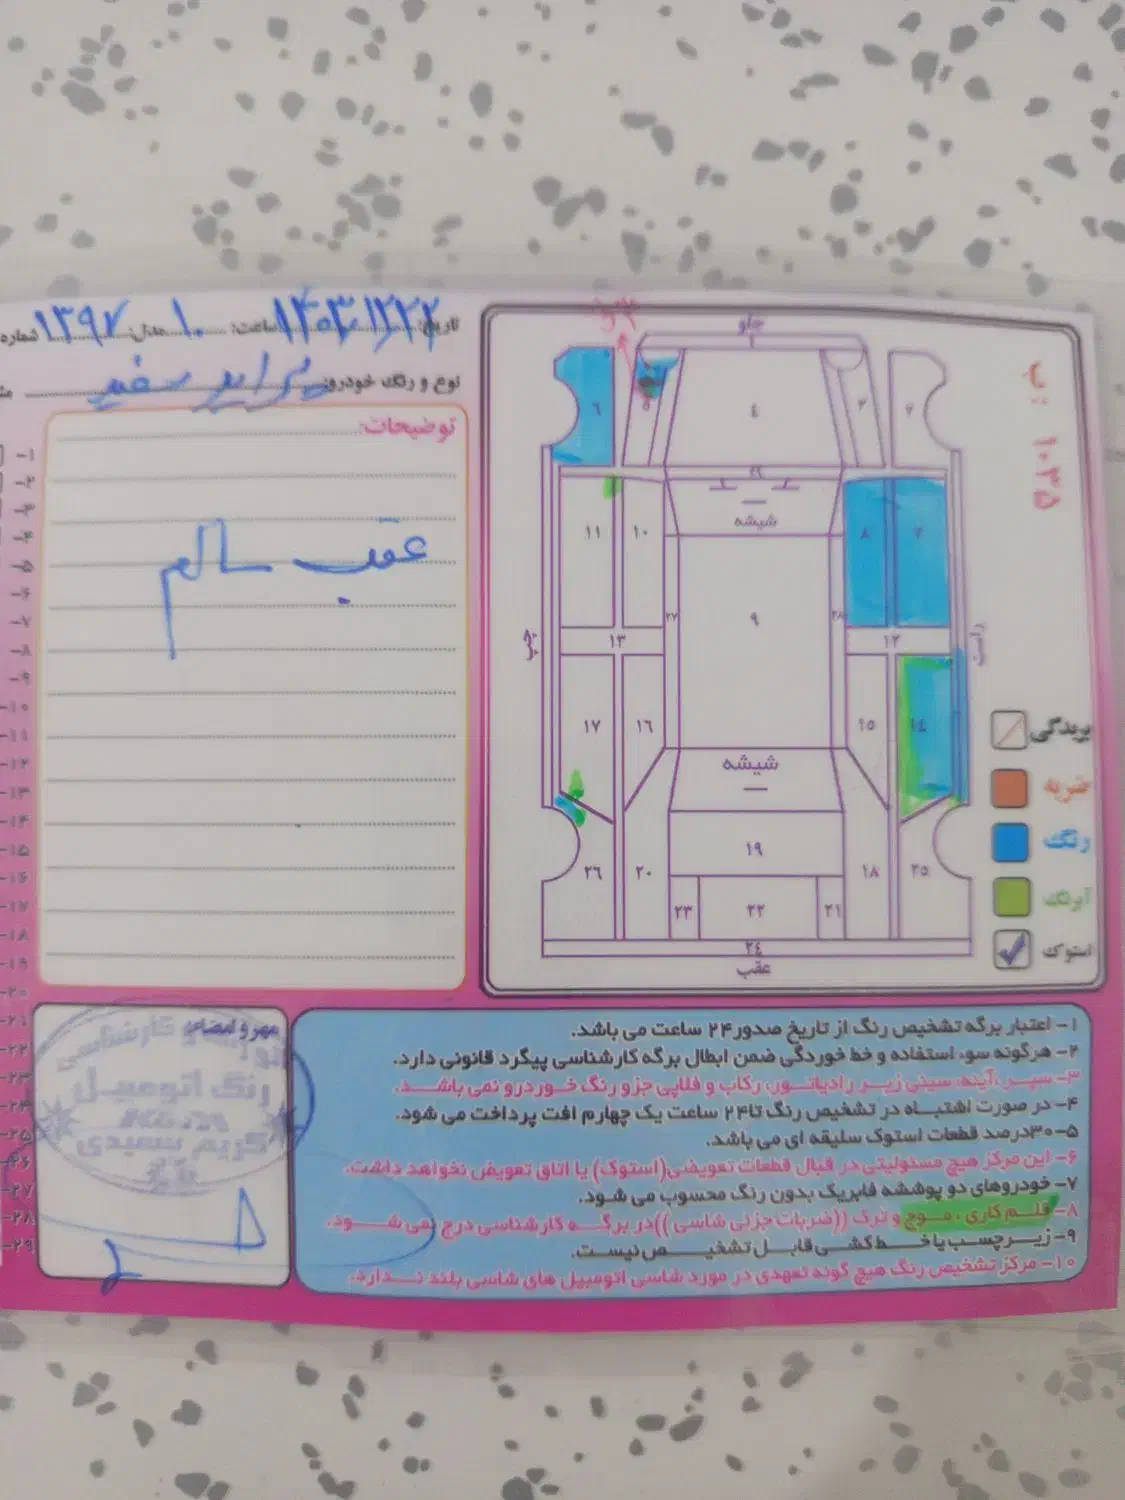 تاریخ: ۱۴۰۳/۱۲/۲۲ ساعت: ۱۰ مدل: ۱۳۹۷ شماره
نوع و رنگ خودرو: پراید سفید
توضیحات:
عقب سالم
جلو
ب: ۱۰۳۵
۶
۵
۴
۳
۲
۲۹
شیشه
۱۱
۱۰
۸
۷
۹
۲۷
۲۸
چپ
راست
۱۳
۱۲
۱۷
۱۶
۱۵
۱۴
شیشه
۱۹
۲۶
۲۰
۱۸
۲۵
۲۳
۲۲
۲۱
۲۴
عقب
پریدگی
ضربه
رنگ
آبرنگ
استوک
۱- اعتبار برگه تشخیص رنگ از تاریخ صدور ۲۴ ساعت می باشد.
۲- هرگونه سوء استفاده و خط خوردگی ضمن ابطال برگه کارشناسی پیگرد قانونی دارد.
۳- سپر، آینه، سینی زیر رادیاتور، رکاب و قلاپی جزو رنگ خودرو نمی باشد.
۴- در صورت اشتباه در تشخیص رنگ تا ۲۴ ساعت یک چهارم افت پرداخت می شود.
۵- ۳۰درصد قطعات استوک سلیقه ای می باشد.
۶- این مرکز هیچ مسئولیتی در قبال قطعات تعویضی(استوک) یا اتاق تعویض نخواهد داشت.
۷- خودروهای دو پوششه فابریک بدون رنگ محسوب می شود.
۸- قلم کاری، موج و ترک ((ضربات جزئی شاسی)) در برگه کارشناسی درج نمی شود.
۹- زیر چسب یا خط کشی قابل تشخیص نیست.
۱۰- مرکز تشخیص رنگ هیچ گونه تعهدی در مورد شاسی اتومبیل های شاسی بلند ندارد.
مهر و امضاء
کارشناسی
رنگ اتومبیل
کریم سعیدی
۱-
۲-
۳-
۴-
۵-
۶-
۷-
۸-
۹-
۱۰-
۱۱-
۱۲-
۱۳-
۱۴-
۱۵-
۱۶-
۱۷-
۱۸-
۱۹-
۲۰-
۲۱-
۲۲-
۲۳-
۲۴-
۲۵-
۲۶-
۲۷-
۲۸-
۲۹-